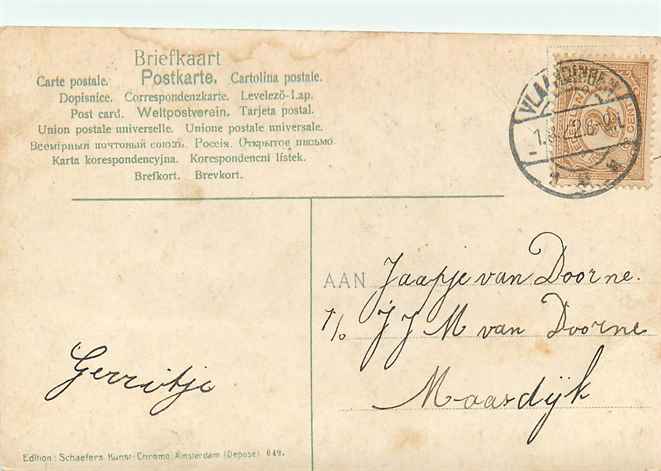 Briefkaart
Carte postale. Postkarte. Cartolina postale.
Dopisnice. Correspondenzkarte. Levelező-Lap.
Post card. Weltpostverein. Tarjeta postal.
Union postale universelle. Unione postale universale.
Всемірный почтовый союзъ. Россія. Открытое письмо.
Karta korespondencyjna. Korespondencni listek.
Brefkort. Brevkort.
VLAARDINGEN
AAN Jaapje van Doorne.
J J M van Doorne
Maasdijk
Gerritje
Edition: Schaefers Kunst-Chromo, Amsterdam (Deposé) 649.